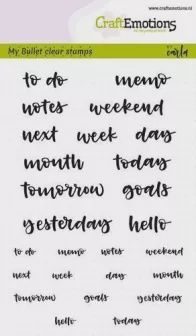 www.craftemotions.nl
CraftEmotions
My Bullet clear stamps
carla
to do memo
notes weekend
next week day
month today
tomorrow goals
yesterday hello
to do memo notes weekend
next week day month
tomorrow goals yesterday
hello today